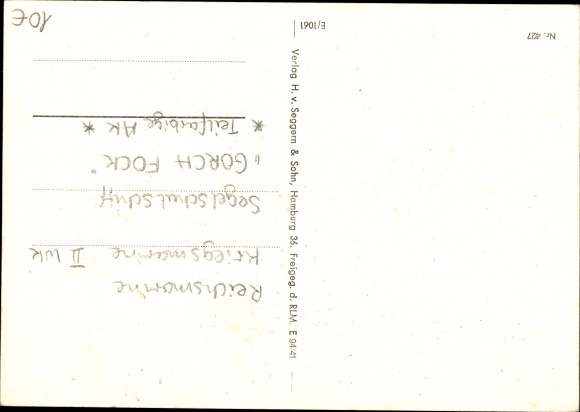 Reichsmarine
Kriegsmarine II WK
Segelschulschiff
"GORCH FOCK"
* Teilfarbige AK *
10€
Nr. 427
E/1061
Verlag H. v. Seggern & Sohn, Hamburg 36. Freigeg. d. RLM. E 94/41